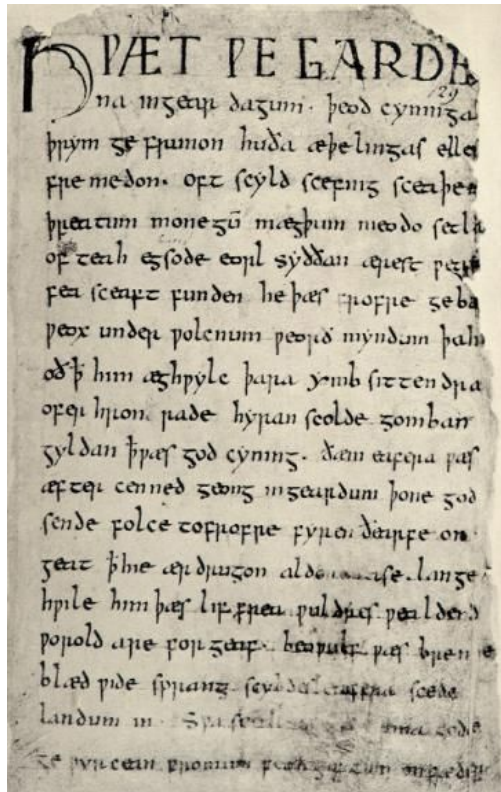 HǷÆT ǷE GARDE
129
na ingear dagum. þeod cyninga
þrym ge frunon huða æþelingas elle
fremedon. oft scyld scefing sceaþe
þreatum monegū mægþum meodo setla
of teah egsode eorl syððan ærest ƿear
fea sceaft funden he þæs frofre geba
ƿeox under ƿolcnum ƿeorð myndum þah
oð ꝥ him æghƿylc þara ymb sittendra
ofer hron rade hyran scolde gomban
gyldan ꝥ ƿæs god cyning. ðæm eafera ƿæs
æfter cenned geong ingeardum þone god
sende folce tofrofre fyren ðearfe on
geat ꝥ hie ær drugon aldo ase. lange
hƿile him þæs lif frea ƿuldres ƿealdend
ƿorold are for geaf. beoƿulf ƿæs breme
blæd ƿide sprang scyldes eafera scede
landum in. Sƿa sceal guma gode
ge ƿyrcean fromum feoh giftum on fæder